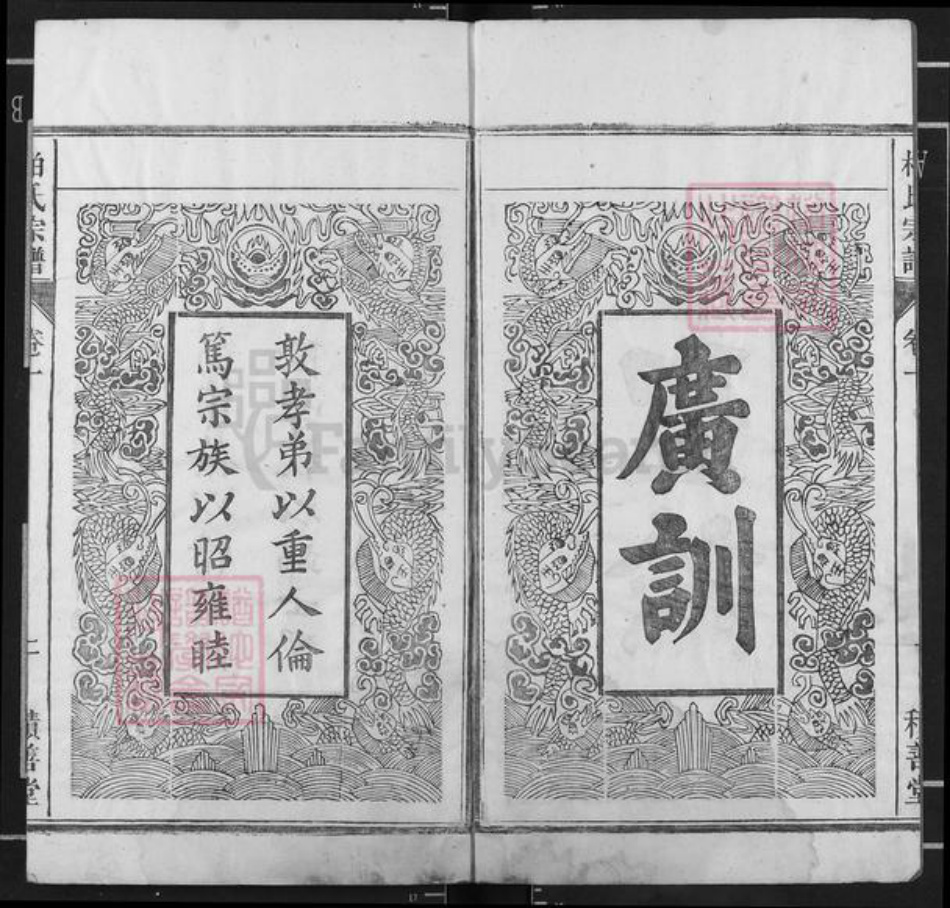 廣訓
敦孝弟以重人倫
篤宗族以昭雍睦
柏氏宗譜
卷一
積善堂
柏氏宗譜
卷一
積善堂